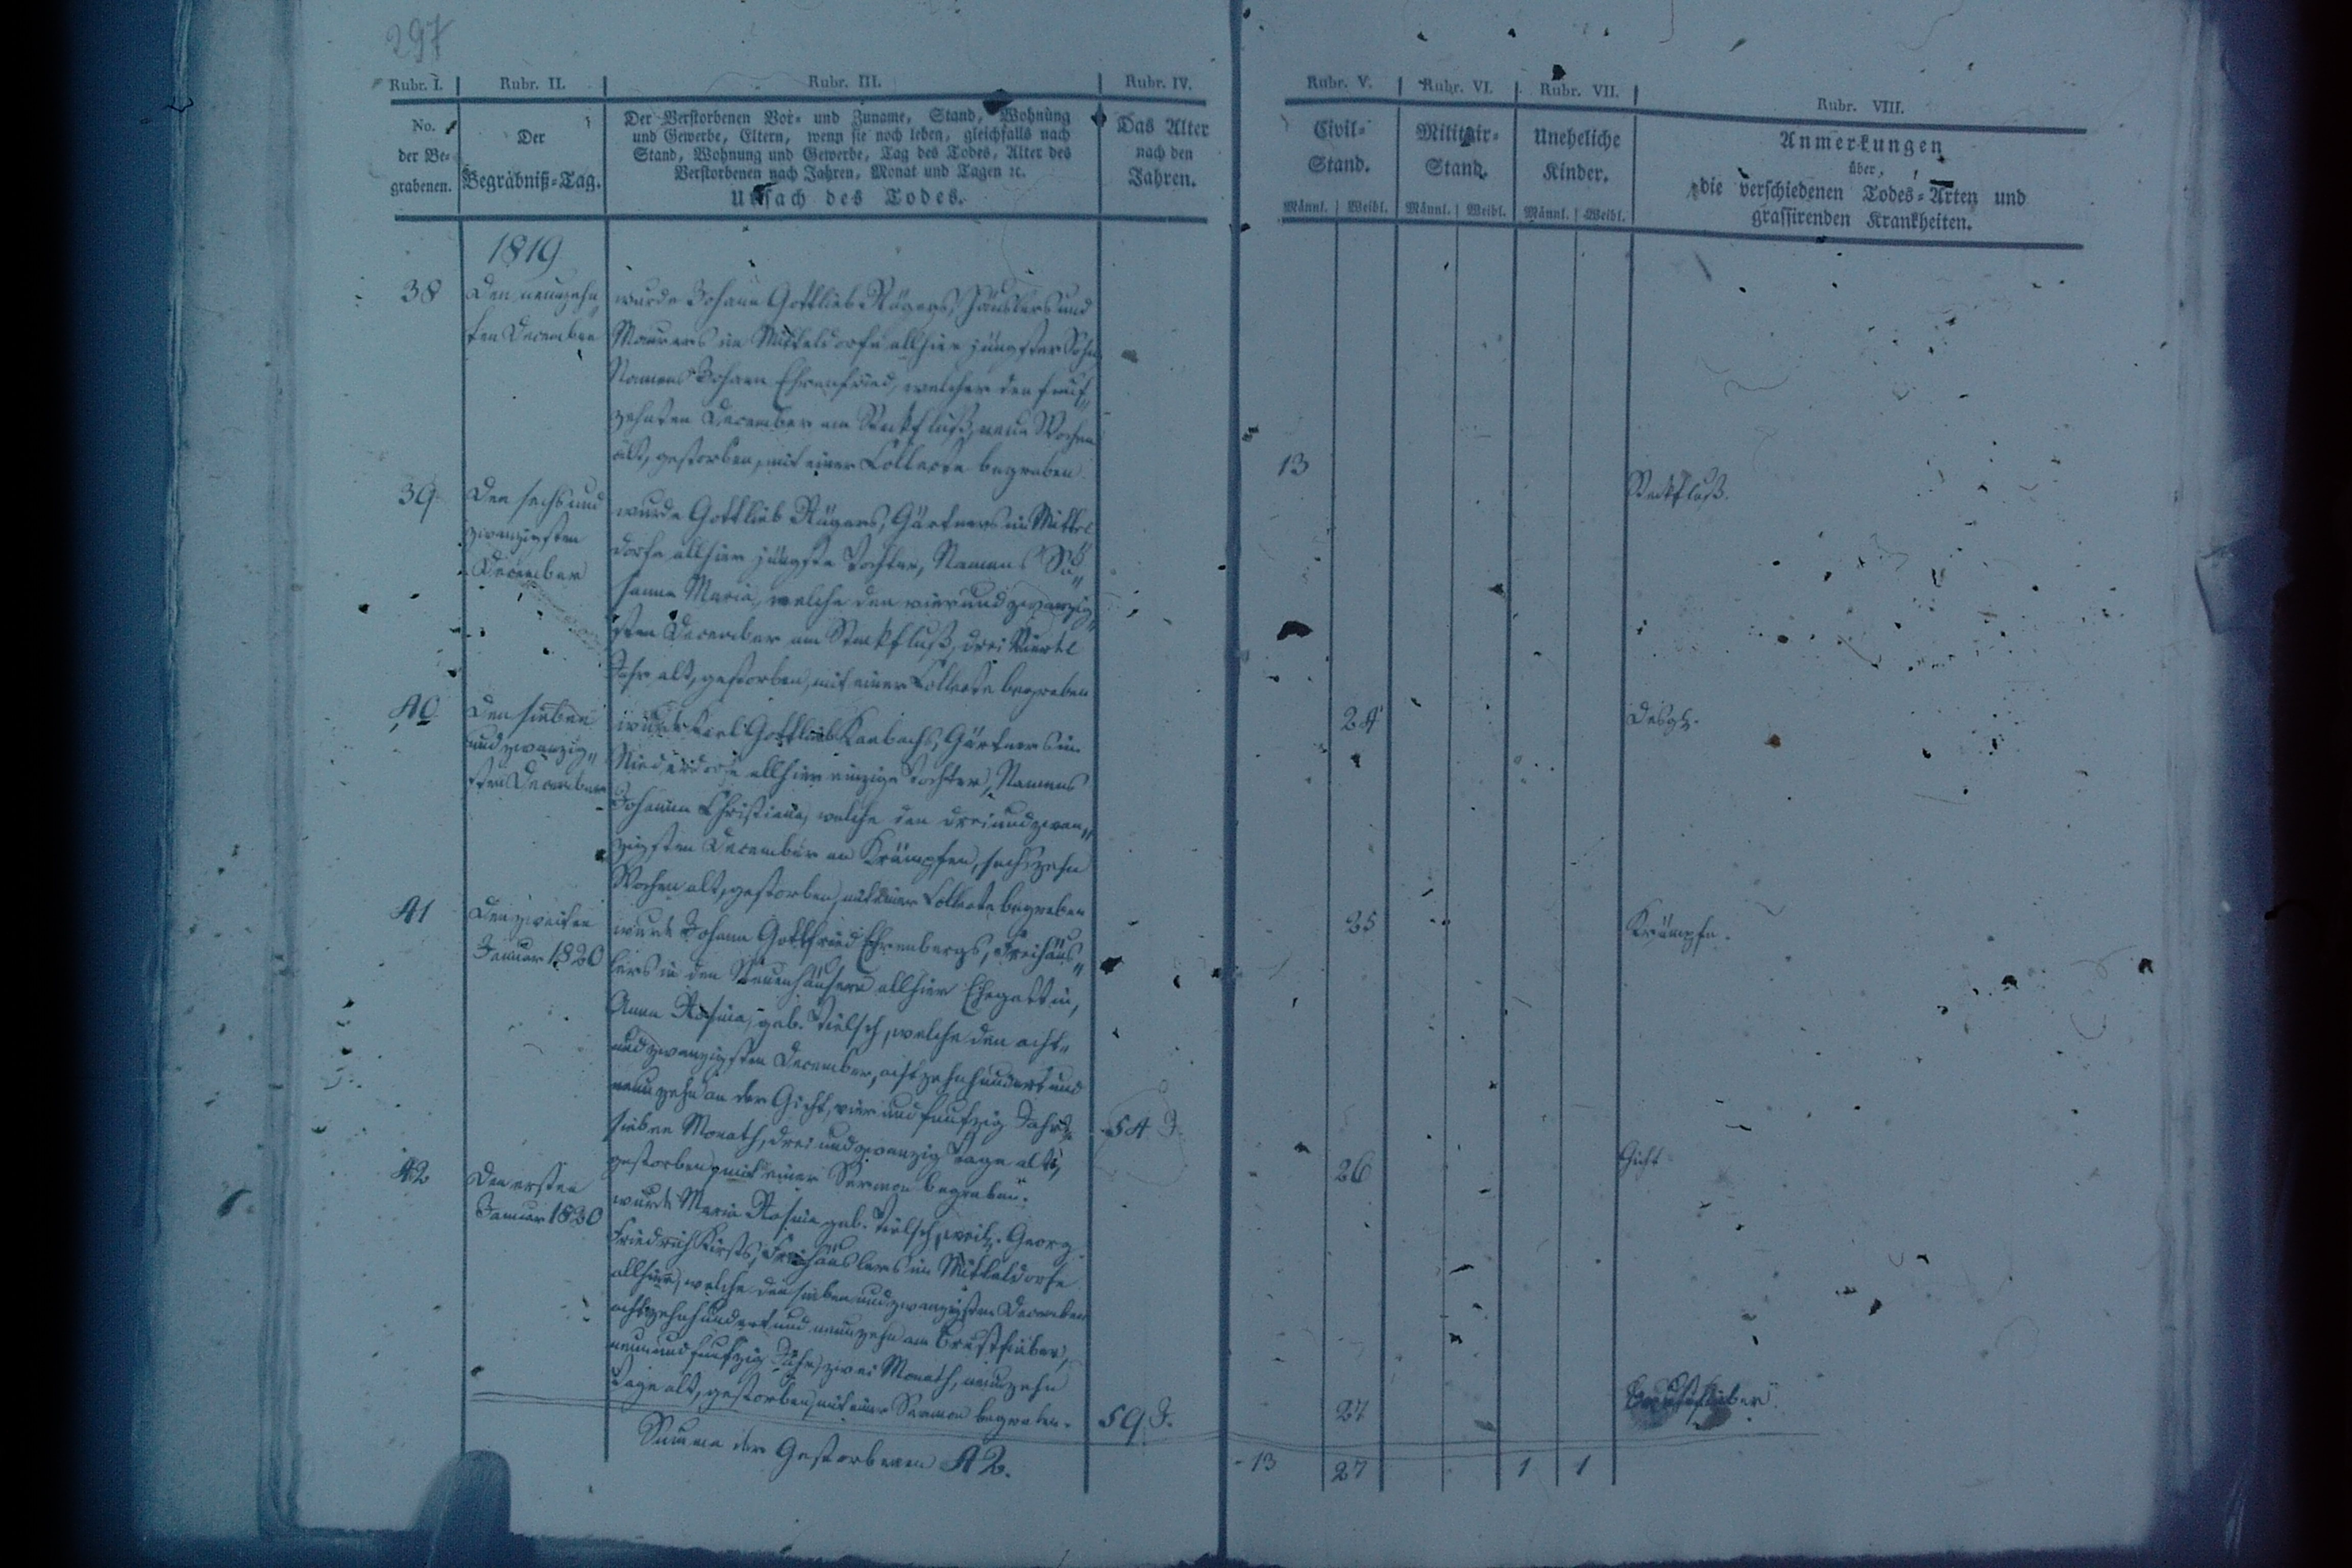 297
Rubr. I. Rubr. II. Rubr. III. Rubr. IV. Rubr. V. Rubr. VI. Rubr. VII. Rubr. VIII.
No.
der Be-
grabenen.
Der
Begräbniß-Tag.
Der Verstorbenen Vor- und Zuname, Stand, Wohnung
und Gewerbe, Eltern, wenn sie noch leben, gleichfalls nach
Stand, Wohnung und Gewerbe, Tag des Todes, Alter des
Verstorbenen nach Jahren, Monat und Tagen ꝛc.
Ursach des Todes.
Das Alter
nach den
Jahren.
Civil-
Stand.
Männl. Weibl.
Militair-
Stand.
Männl. Weibl.
Uneheliche
Kinder.
Männl. Weibl.
Anmerkungen
über
die verschiedenen Todes-Arten und
grassirenden Krankheiten.
1819
38
Den neunzehn
ten December
wurde Johann Gottlieb Rügers, Häuslers und
Maurers im Mitteldorfe allhier jüngster Sohn
Namens Johann Ehrenfried, welcher den funf„
zehnten December am Steckfluß, neun Wochen
alt, gestorben, mit einer Collecte begraben.
13
Steckfluß.
39
Den sechs und
zwanzigsten
December
wurde Gottlieb Rügers, Gärtners im Mittel
dorfe allhier jüngste Tochter, Namens Su„
sanna Maria, welche den vier und zwanzig„
sten December am Steckfluß, drei Viertel
Jahr alt, gestorben, mit einer Collecte begraben
24
Desgl.
40
Den sieben
und zwanzig„
sten December
wurde Karl Gottlieb Gärtners im
Niederdorfe allhier einzige Tochter, Namens
Johanne Christiane, welche den drei und zwan„
zigsten December an Krämpfen, sechszehn
Wochen alt, gestorben, mit einer Collecte begraben
25
Krämpfe.
41
Den zweiten
Januar 1820
wurde Johann Gottfried Ehrenbergs, Freihäus„
lers in den Neuenhäusern allhier Ehegattin,
Anna Rosina, geb. Tielsch, welche den acht„
und zwanzigsten December, achtzehnhundert und
neunzehn an der Gicht, vier und funfzig Jahr,
sieben Monath, drei und zwanzig Tage alt,
gestorben, mit einer Sermon begraben.
54 J.
26
Gicht
42
Den ersten
Januar 1820
wurde Maria Rosina geb. Tielsch, weil. Georg
Friedrich Freihäuslers im Mitteldorfe
allhier, welche den sieben und zwanzigsten December
achtzehnhundert und neunzehn am Brustfieber,
neun und funfzig Jahr, zwei Monath, neunzehn
Tage alt, gestorben, mit einer Sermon begraben.
59 J.
27
Brustfieber.
Summa der Gestorbenen 42.
13 27 1 1